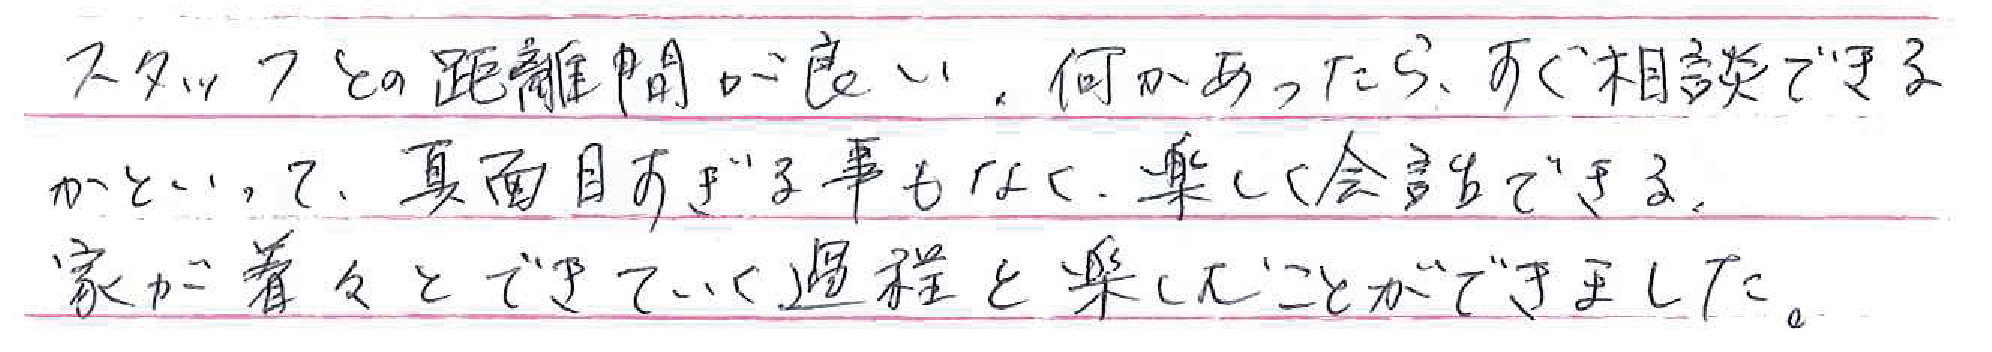 スタッフとの距離間が良い。何かあったら、すぐ相談できる
かといって、真面目すぎる事もなく、楽しく会話できる。
家が着々とできていく過程と楽しむことができました。